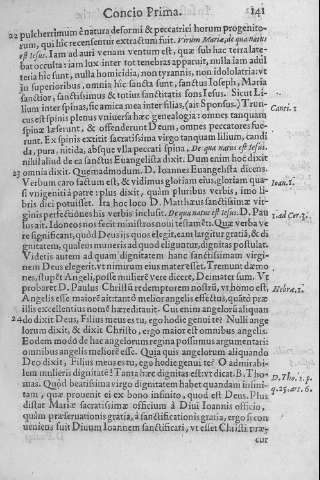 Concio Prima. 141
22 pulcherrimum è natura deformi & peccatrici horum progenito-
rum, qui hic recensentur extractum fuit. Virum Mariæ, de qua natus
est Iesus. Iam ad auri venam ventum est, quæ sub hac terra late-
bat occulta: iam lux inter tot tenebras apparuit, nulla iam adul
teria hic sunt, nulla homicidia, non tyrannis, non idololatria vt
in superioribus, omnia hic sancta sunt, sanctus Ioseph, Maria
sanctior, sanctissimus & totius sanctitatis fons Iesus. Sicut Li-
lium inter spinas, sic amica mea inter filias, (ait Sponsus.) Trun-
Canti. 2
cus est spinis plenus vniuersa hæc genealogia: omnes tanquam
spinæ læserunt, & offenderunt Deum, omnes peccatores fue-
runt. Ex spinis extitit sacratissima virgo tanquam lilium, candi
da, pura, nitida, absque vlla peccati spina, De qua natus est Iesus.
nihil aliud de ea sanctus Euangelista dixit. Dum enim hoc dixit
23 omnia dixit. Quemadmodum D. Ioannes Euangelista dicens.
Verbum caro factum est, & vidimus gloriam eius, gloriam qua-
Ioan. 1.
si vnigeniti à patre: plus dixit, quàm pluribus verbis, imo li-
bris dici potuisset. Ita hoc loco D. Matthæus sanctissimæ vir-
ginis perfectiones his verbis inclusit. De qua natus est Iesus. D. Pau
lus ait. Idoneos nos fecit ministros noui testamenti. Quæ verba ve
2. ad Cor. 3.
re significant, quòd Deus is quos elegit, eam largitur gratiā, & di
gnitatem, qualem muneris ad quod eliguntur, dignitas postulat.
Videtis autem ad quam dignitatem hanc sanctissimam virgi-
nem Deus elegerit, vt nimirum eius mater esset. Tremunt dæmo
nes, stupēt Angeli, posse mulierē vere dicere, Dei mater sum. Vt
probaret D. Paulus Christū redemptorem nostrū, vt homo est,
Hebræ. 1.
Angelis esse maiorē ait: tantò melior angelis effectus, quātò præ
illis excellentius nomē hæreditauit. Cui enim angelorū aliquan
24 do dixit Deus, Filius meus es tu, ego hodie genui te? Nulli ange
lorum dixit, & dixit Christo, ergo maior est omnibus angelis.
Eodem modo de hac angelorum regina possumus argumentari:
omnibus angelis meliorē esse. Quia quis angelorum aliquando
Deo dixit, Filius meus es tu, ego hodie genui te? O admirabi-
lem mulieris dignitatē! Tanta hæc dignitas est: vt dicat. B. Tho-
D. Tho. 1. p.
mas. Quòd beatissima virgo dignitatem habet quandam infini-
q. 25. ar. 6.
tam, quæ prouenit ei ex bono infinito, quod est Deus. Plus
distat Mariæ sacratissimæ officium à Diui Ioannis officio,
quàm præseruationis gratia, à sanctificationis gratia, ergo si con
ueniens fuit Diuum Ioannem sanctificari, vt esset Christi præ-
cur